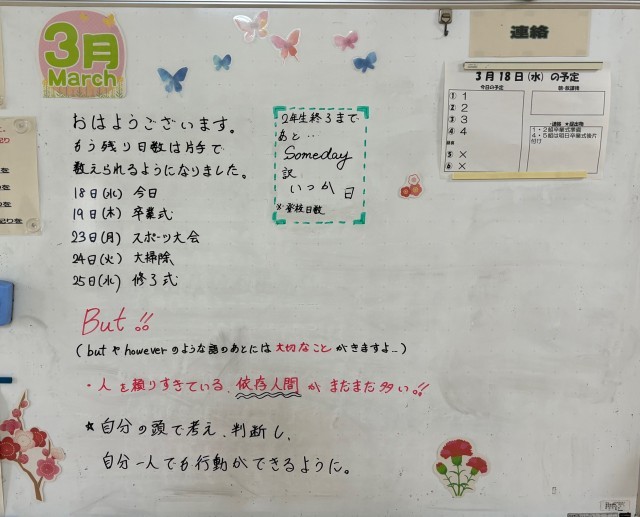 3月
March
おはようございます。
もう残り日数は片手で
数えられるようになりました。
18日(水) 今日
19日(木) 卒業式
23日(月) スポーツ大会
24日(火) 大掃除
25日(水) 修了式
2年生終了まで
あと…
Someday
訳
いつか 日
※登校日数
連絡
3月18日(水)の予定
今日の予定
① 1
② 2
③ 3
④ 4
⑤ ×
⑥ ×
1・2組卒業式準備
4・5組は明日卒業式後片
付け
But!!
(butやhoweverのような語のあとには大切なことがきますよ…)
・人を頼りすぎている、依存人間がまだまだ多い!!
☆自分の頭で考え、判断し、
自分一人でも行動ができるように。